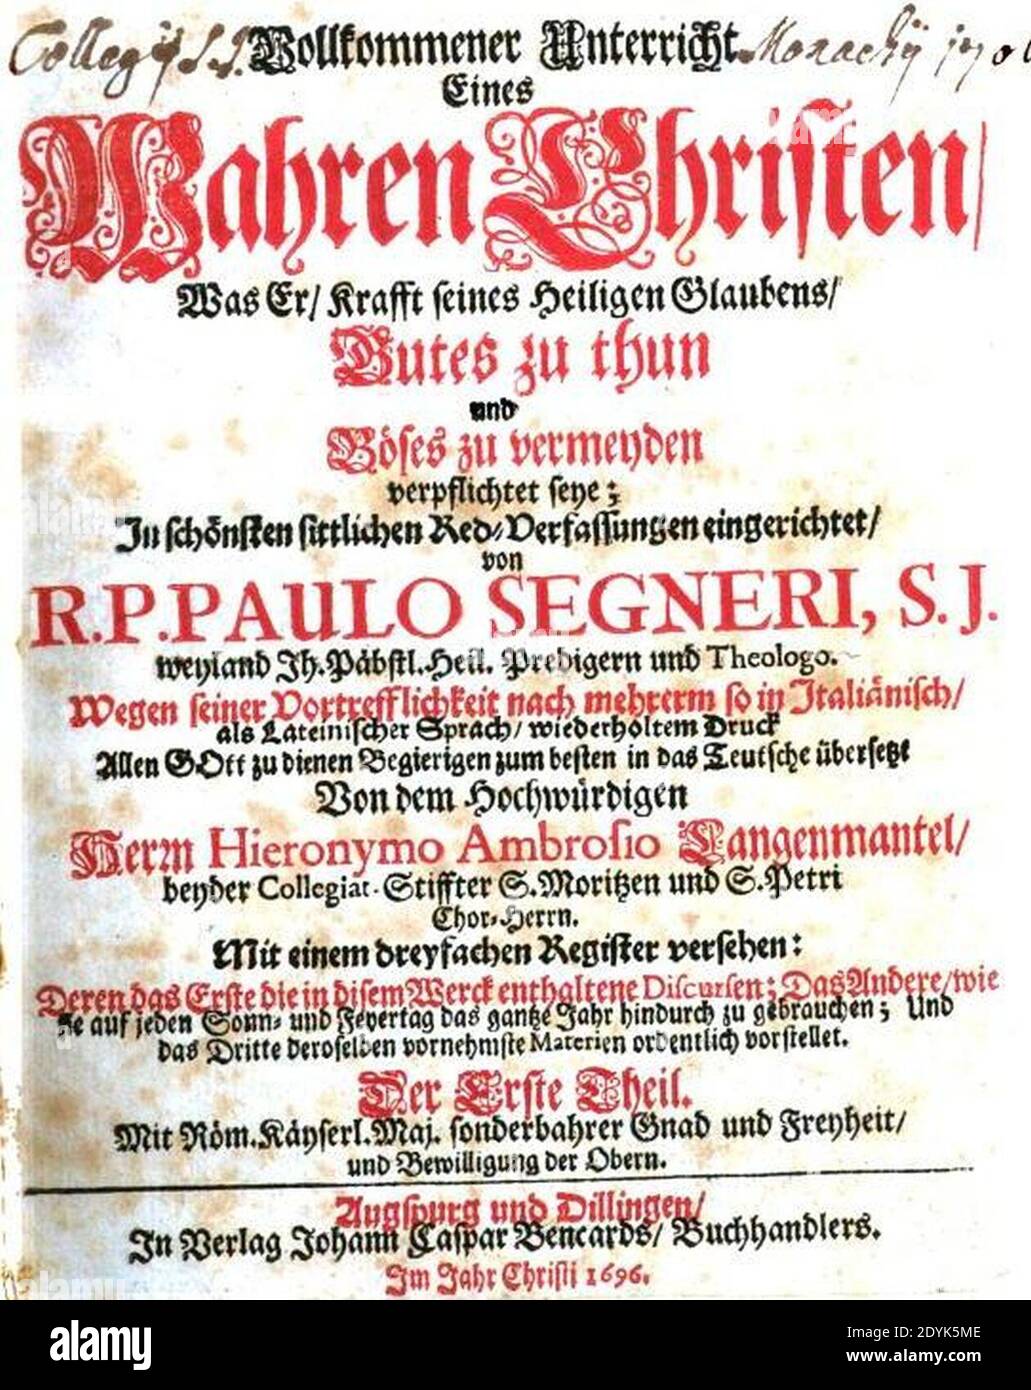 Collegij S. J. Monachij 1701
Vollkommener Unterricht
Eines
Wahren Christen/
Was Er/ Krafft seines Heiligen Glaubens/
Gutes zu thun
und
Böses zu vermeyden
verpflichtet seye;
In schönsten sittlichen Red-Verfassungen eingerichtet/
von
R.P.PAULO SEGNERI, S.J.
weyland Ih. Päbstl. Heil. Predigern und Theologo.
Wegen seiner Vortrefflichkeit nach mehrerm so in Italiänisch/
als Lateinischer Sprach/ wiederholtem Druck
Allen GOtt zu dienen Begierigen zum besten in das Teutsche übersetzt
Von dem Hochwürdigen
Herrn Hieronymo Ambrosio Langenmantel/
beyder Collegiat-Stiffter S. Moritzen und S. Petri
Chor-Herrn.
Mit einem dreyfachen Register versehen:
Deren das Erste die in disem Werck enthaltene Discursen; Das Andere/ wie
sie auf jeden Sonn- und Feyertag das gantze Jahr hindurch zu gebrauchen; Und
das Dritte deroselben vornehmste Materien ordentlich vorstellet.
Der Erste Theil.
Mit Röm. Käyserl. Maj. sonderbahrer Gnad und Freyheit/
und Bewilligung der Obern.
Augspurg und Dillingen/
In Verlag Johann Caspar Bencards/ Buchhandlers.
Im Jahr Christi 1696.
alamy
Image ID: 2DYK5ME
www.alamy.com